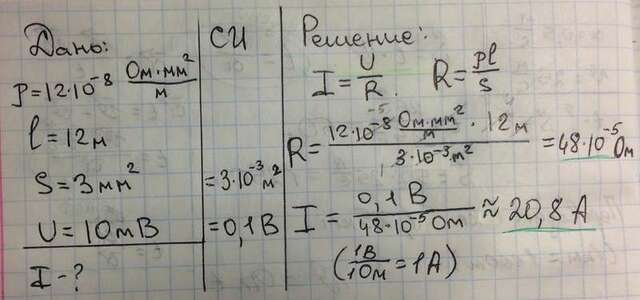 Дано:
ρ = 12·10⁻⁸ Ом·мм²/м
l = 12м
S = 3мм²
U = 10мВ
I - ?
СИ
= 3·10⁻³м²
= 0,1В
Решение:
I = U/R. R = ρl/S
R = 12·10⁻⁸ Ом·мм²/м · 12м / 3·10⁻³м² = 48·10⁻⁵ Ом
I = 0,1В / 48·10⁻⁵Ом ≈ 20,8А
(1В/1Ом = 1А)